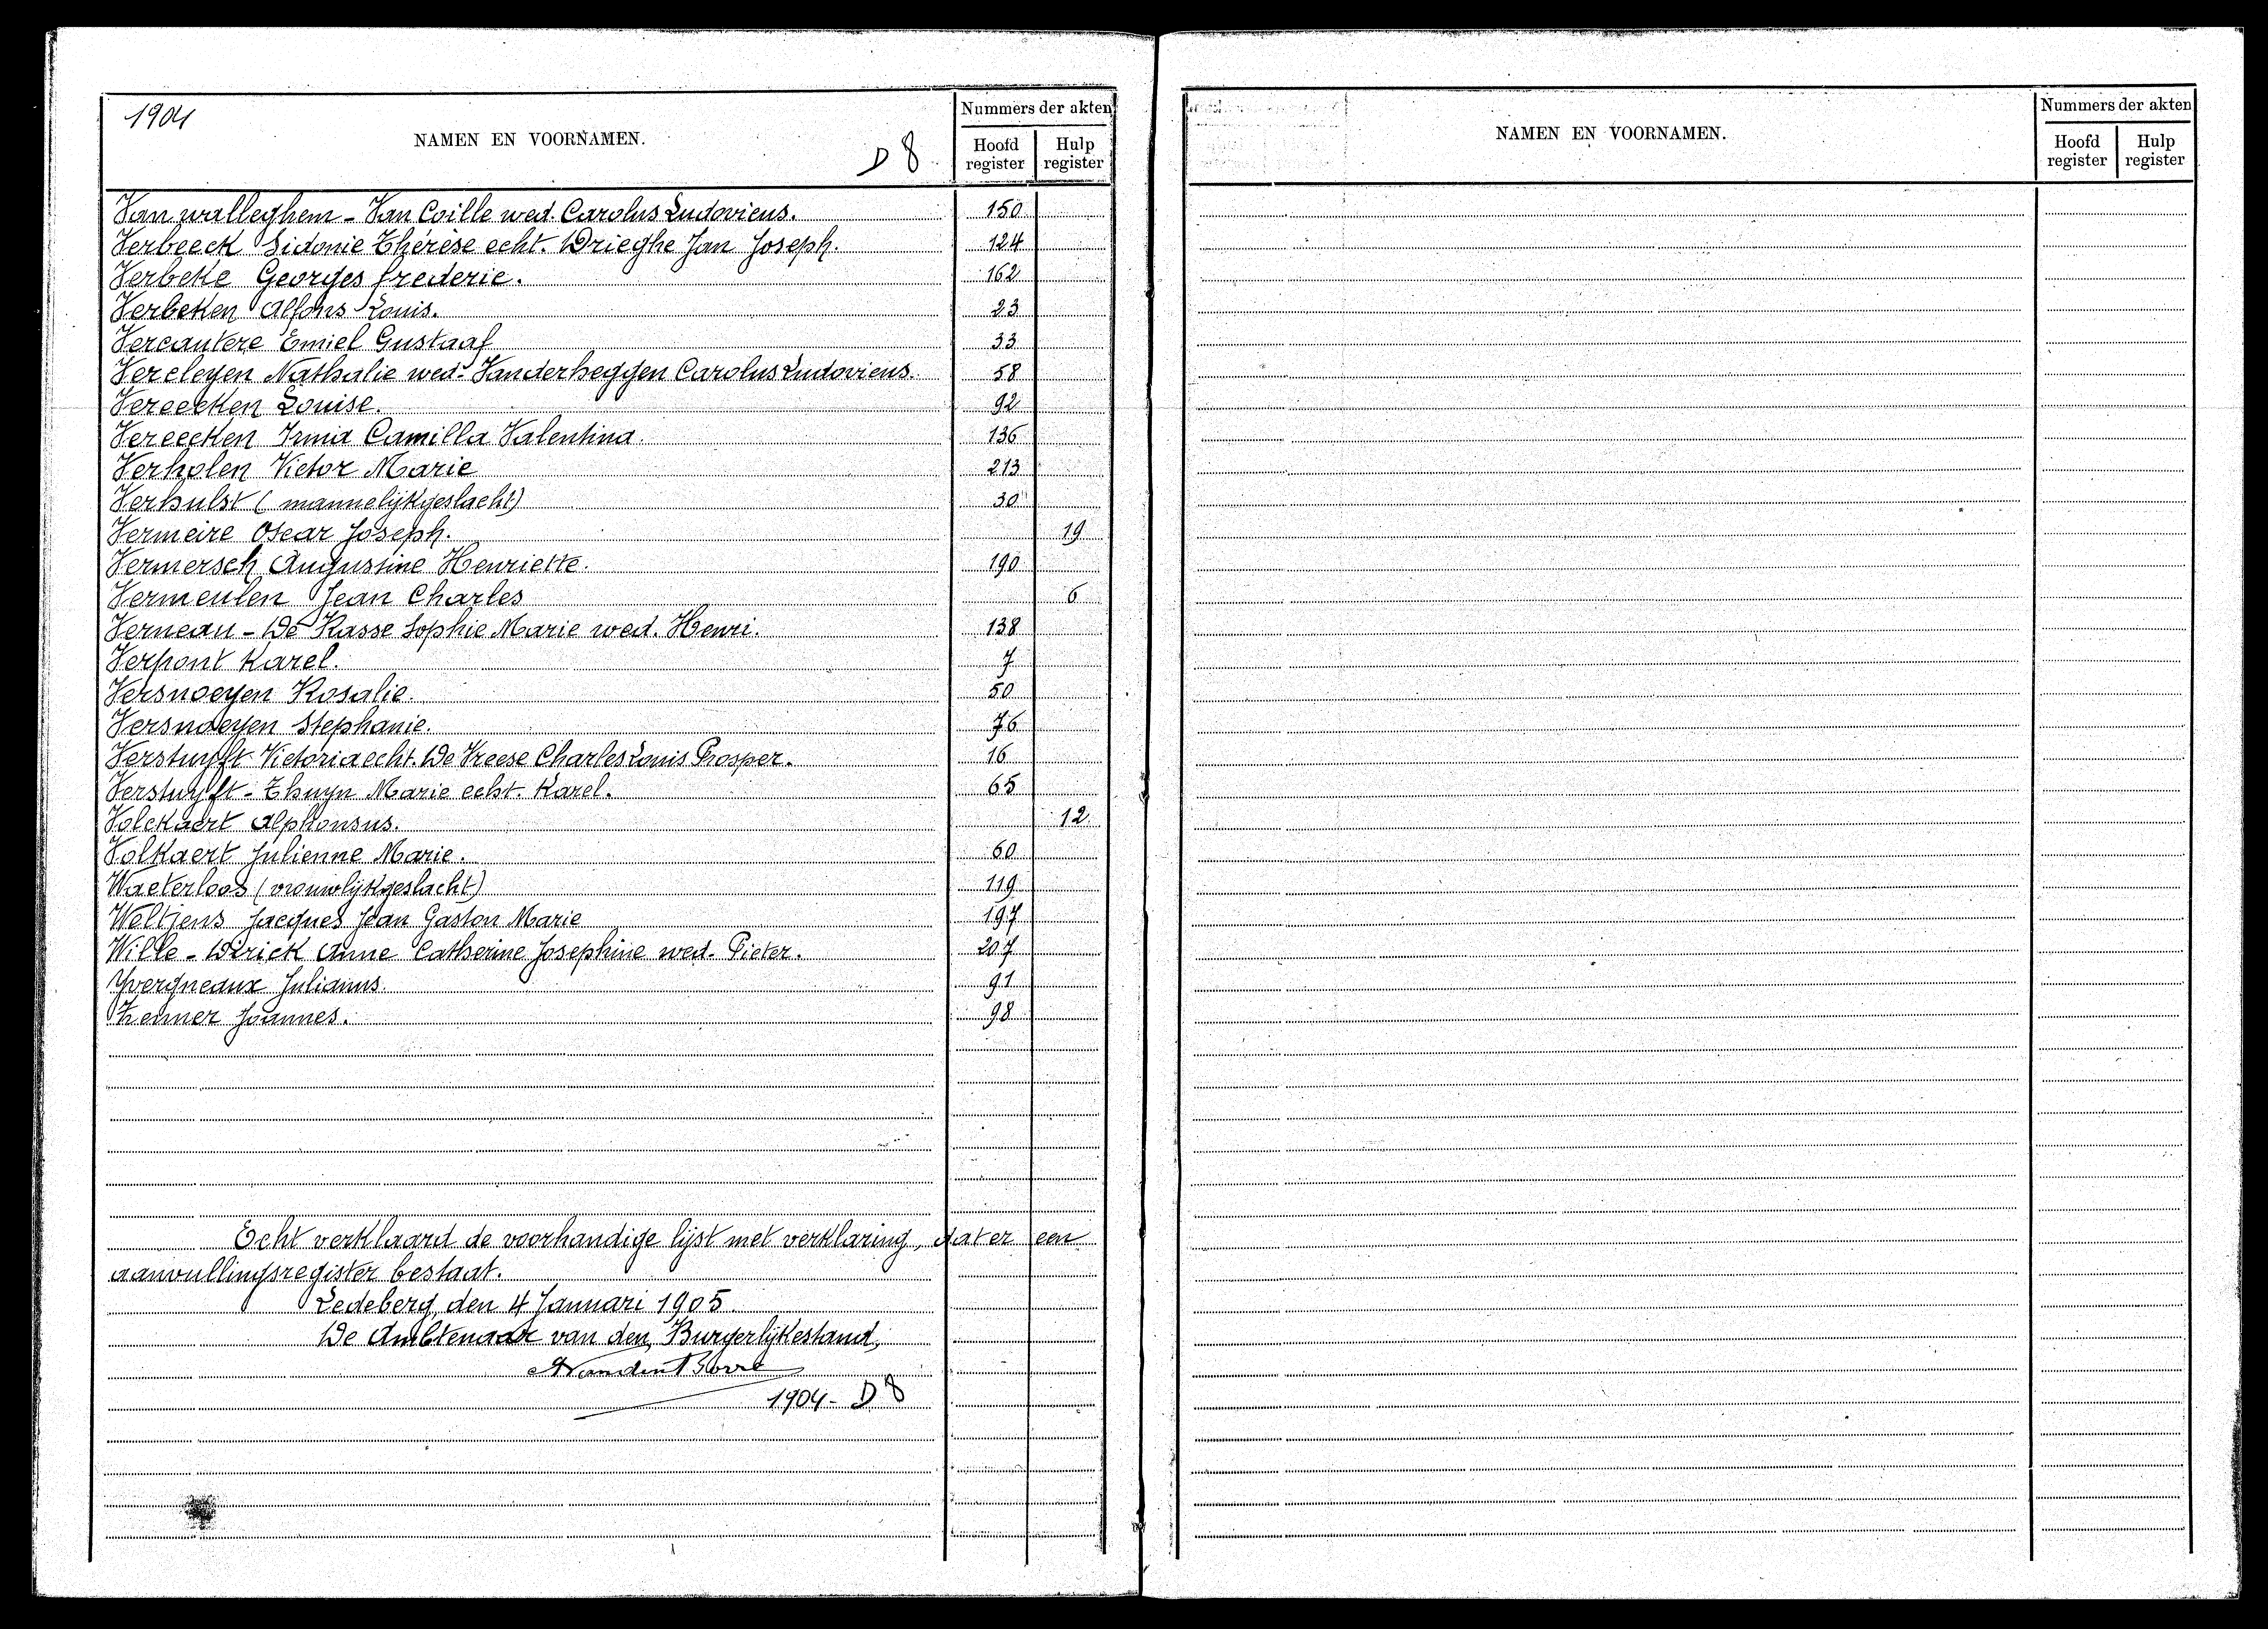 1904
NAMEN EN VOORNAMEN.
D 8
Nummers der akten
Hoofd register
Hulp register
Van walleghem - Van Coille wed. Carolus Ludovicus. 150
Verbeeck Sidonie Thérèse echt. Drieghe Jan Joseph. 124
Verbeke Georges frederic. 162
Verbeken Alfons Louis. 23
Vercautere Emiel Gustaaf 33
Vercleyen Nathalie wed. Vanderheggen Carolus Ludovicus. 58
Vereecken Louise. 92
Vereecken Irma Camilla Valentina. 136
Verholen Victor Marie 213
Verhulst (mannelijkgeslacht) 30
Vermeire Oscar Joseph. 19
Vermersch Augustine Henriette. 190
Vermeulen Jean Charles 6
Verneau - De Kasse Sophie Marie wed. Henri. 138
Verpont Karel. 7
Versnoeyen Rosalie. 50
Versnoeyen Stephanie. 76
Verstuyft Victoria echt. De Vreese Charles Louis Prosper. 16
Verstuyft - Thuyn Marie echt. Karel. 65
Volckaert Alphonsus. 12
Volkaert Julienne Marie. 60
Waeterloos (vrouwlijkgeslacht) 119
Weltjens Jacques Jean Gaston Marie 197
Wille - Dirick Anne Catherine Josephine wed. Pieter. 207
Yvergneaux Julianus. 91
Zenner Joannes. 98
Echt verklaard de voorhandige lijst met verklaring, dat er een
aanvullingsregister bestaat.
Ledeberg, den 4 Januari 1905.
De Ambtenaar van den Burgerlijkestand,
1904 - D 8
NAMEN EN VOORNAMEN.
Nummers der akten
Hoofd register
Hulp register